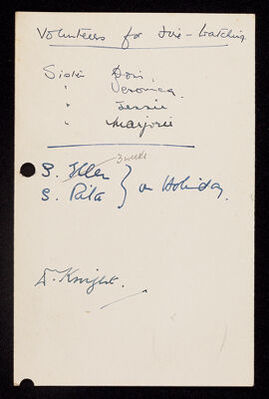 Volunteers for Fire-Watching.
Sister Dori.
" Veronica.
" Jessie
" Marjorie
3 weeks
S. Ellen
S. Rita } on Holiday.
Knight.